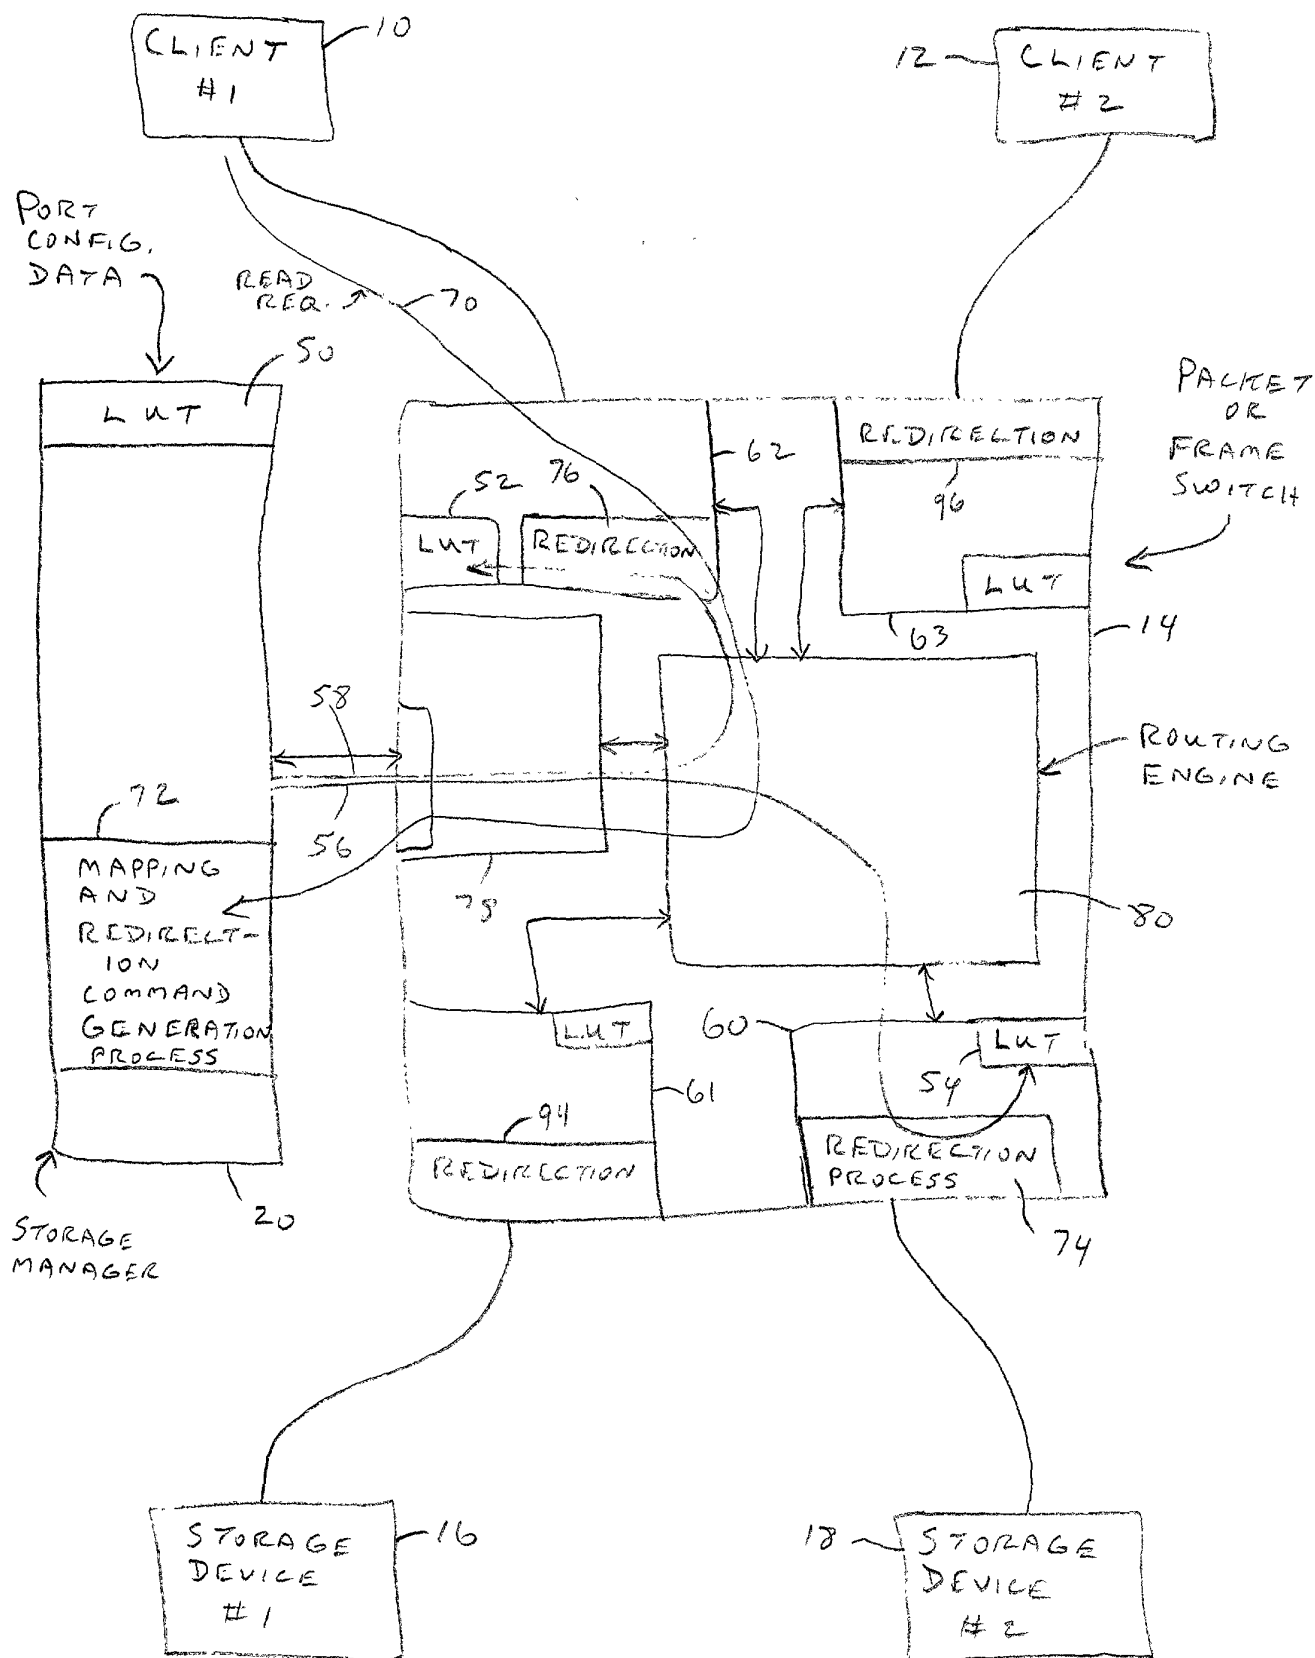 CLIENT
#1
10
12
CLIENT
#2
PORT
CONFIG.
DATA
READ
REQ.
70
50
LUT
PACKET
OR
FRAME
SWITCH
REDIRECTION
62
96
52
76
LUT
REDIRECTION
LUT
63
14
58
56
ROUTING
ENGINE
72
MAPPING
AND
REDIRECT-
ION
COMMAND
GENERATION
PROCESS
80
LUT
60
LUT
54
61
94
REDIRECTION
REDIRECTION
PROCESS
74
20
STORAGE
MANAGER
STORAGE
DEVICE
#1
16
18
STORAGE
DEVICE
#2